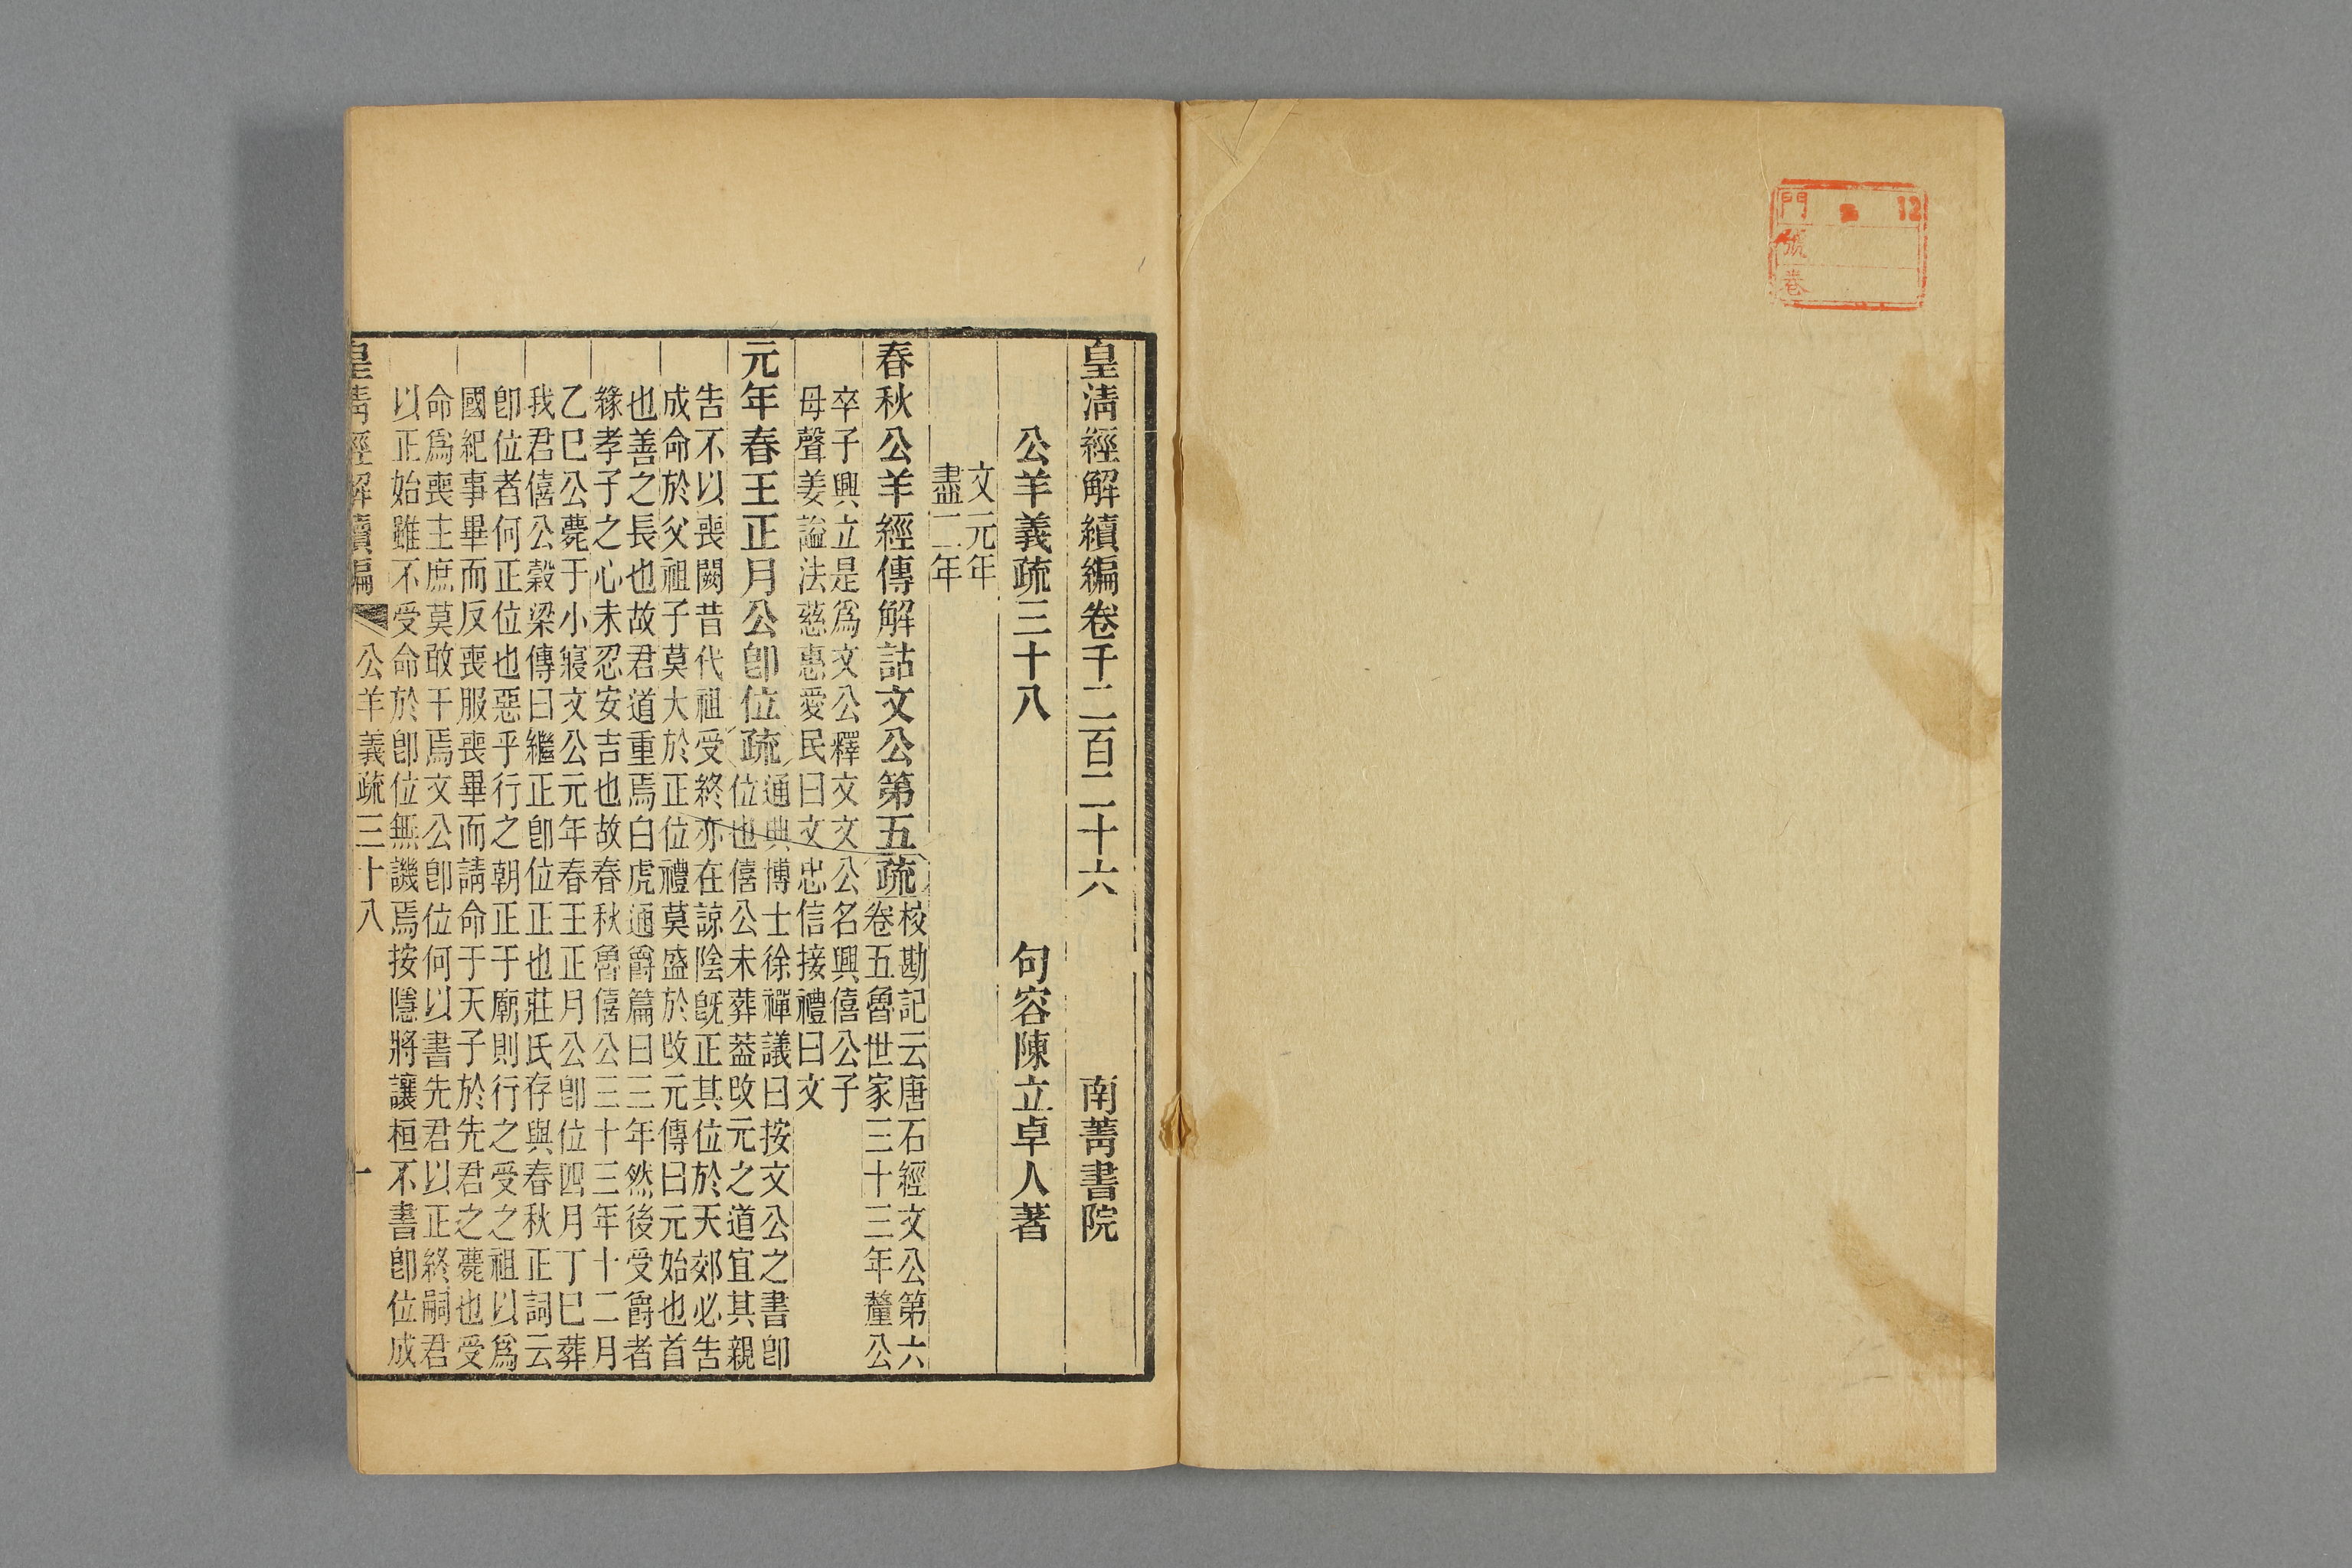 門 12
號
卷
皇清經解續編卷千二百二十六 南菁書院
公羊義疏三十八 句容陳立卓人著
文元年
盡二年
春秋公羊經傳解詁文公第五疏
校勘記云唐石經文公第六
卷五魯世家三十三年釐公
卒子興立是為文公釋文文公名興僖公子
母聲姜謚法慈惠愛民曰文忠信接禮曰文
元年春王正月公卽位疏
通典博士徐禪議曰按文公之書卽
位也僖公未葬葢改元之道宜其親
告不以喪闕昔代祖受終亦在諒陰旣正其位於天郊必告
成命於父祖子莫大於正位禮莫盛於改元傳曰元始也首
也善之長也故君道重焉白虎通爵篇曰三年然後受爵者
緣孝子之心未忍安吉也故春秋魯僖公三十三年十二月
乙巳公薨于小寢文公元年春王正月公卽位四月丁巳葬
我君僖公穀梁傳曰繼正卽位正也莊氏存與春秋正詞云
卽位者何正位也惡乎行之朝正于廟則行之受之祖以為
國紀事畢而反喪服喪畢而請命于天子於先君之薨也受
命爲喪主庶莫敢干焉文公卽位何以書先君以正終嗣君
以正始雖不受命於卽位無譏焉按隱將讓桓不書卽位成
皇清經解續編 公羊義疏三十八 一